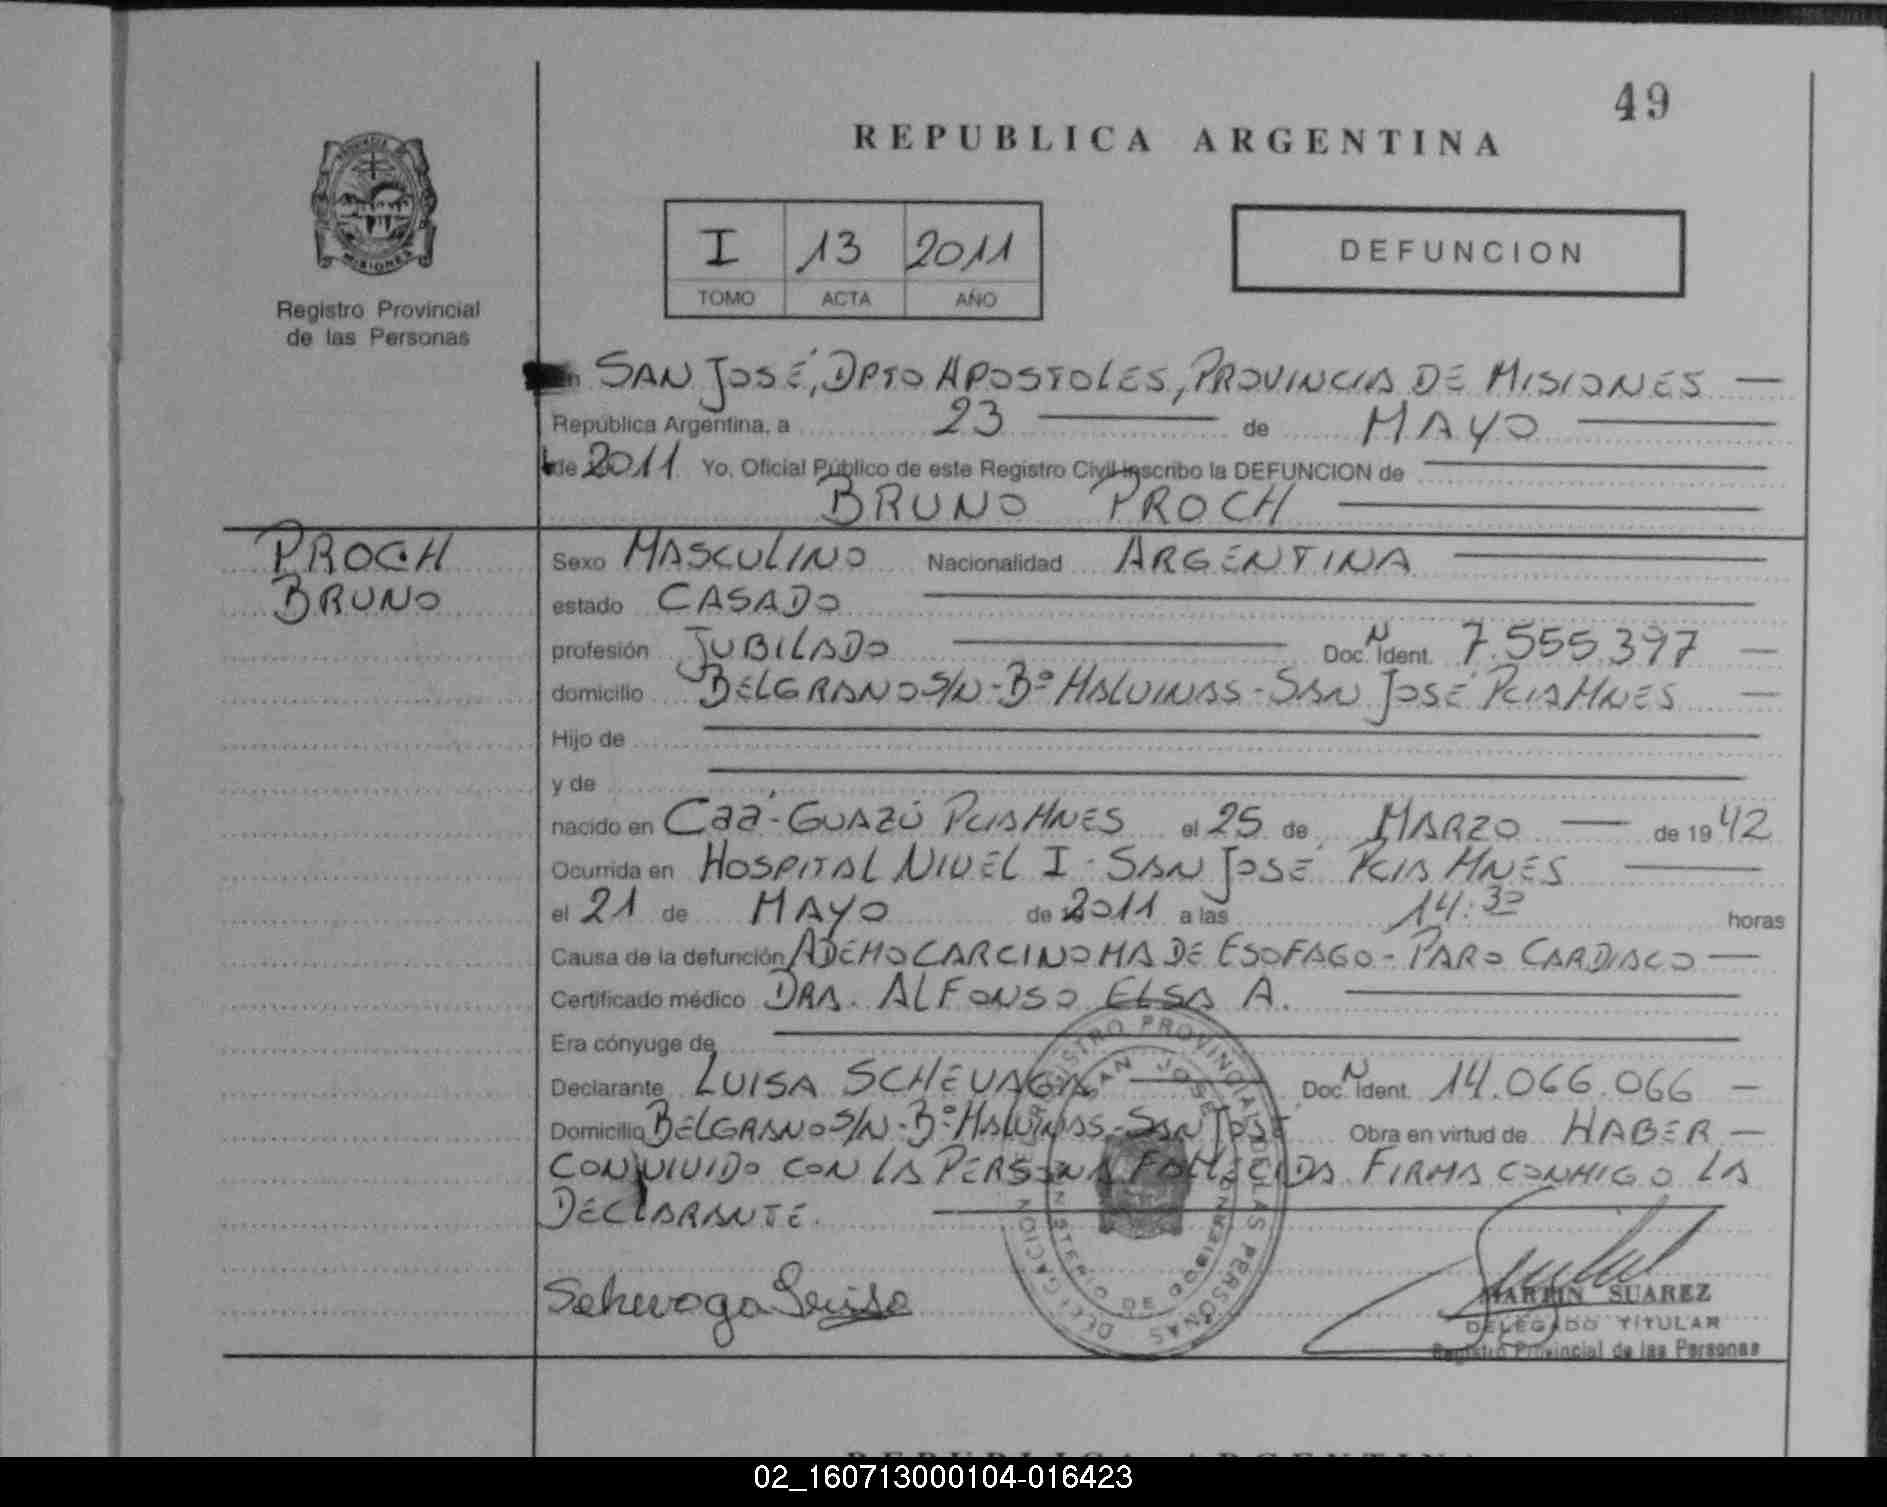 49
REPUBLICA ARGENTINA
MISIONES
Registro Provincial
de las Personas
I 13 2011
TOMO ACTA AÑO
DEFUNCION
En SAN JOSÉ, DPTO APOSTOLES, PROVINCIA DE MISIONES
República Argentina, a 23 de MAYO
de 2011 Yo, Oficial Público de este Registro Civil inscribo la DEFUNCION de
BRUNO PROCH
PROCH
BRUNO
Sexo MASCULINO Nacionalidad ARGENTINA
estado CASADO
profesión JUBILADO Doc. N Ident. 7.555.397
domicilio BELGRANO S/N - Bº MALVINAS - SAN JOSÉ PCIA MNES
Hijo de
y de
nacido en Caá-GUAZÚ PCIA MNES el 25 de MARZO de 1942
Ocurrida en HOSPITAL NIVEL I - SAN JOSÉ PCIA MNES
el 21 de MAYO de 2011 a las 14:30 horas
Causa de la defunción ADEMOCARCINOMA DE ESOFAGO - PARO CARDIACO
Certificado médico DRA. ALFONSO ELSA A.
Era cónyuge de
Declarante LUISA SCHEVAGA Doc. N Ident. 14.066.066
Domicilio BELGRANO S/N - Bº MALVINAS - SAN JOSÉ Obra en virtud de HABER
CONVIVIDO CON LA PERSONA FALLECIDA FIRMA CONMIGO LA
DECLARANTE.
REGISTRO PROVINCIAL DE LAS PERSONAS
SAN JOSE
Schevaga Luisa
MARTIN SUAREZ
DELEGADO TITULAR
Registro Provincial de las Personas
REPUBLICA ARGENTINA
02_160713000104-016423